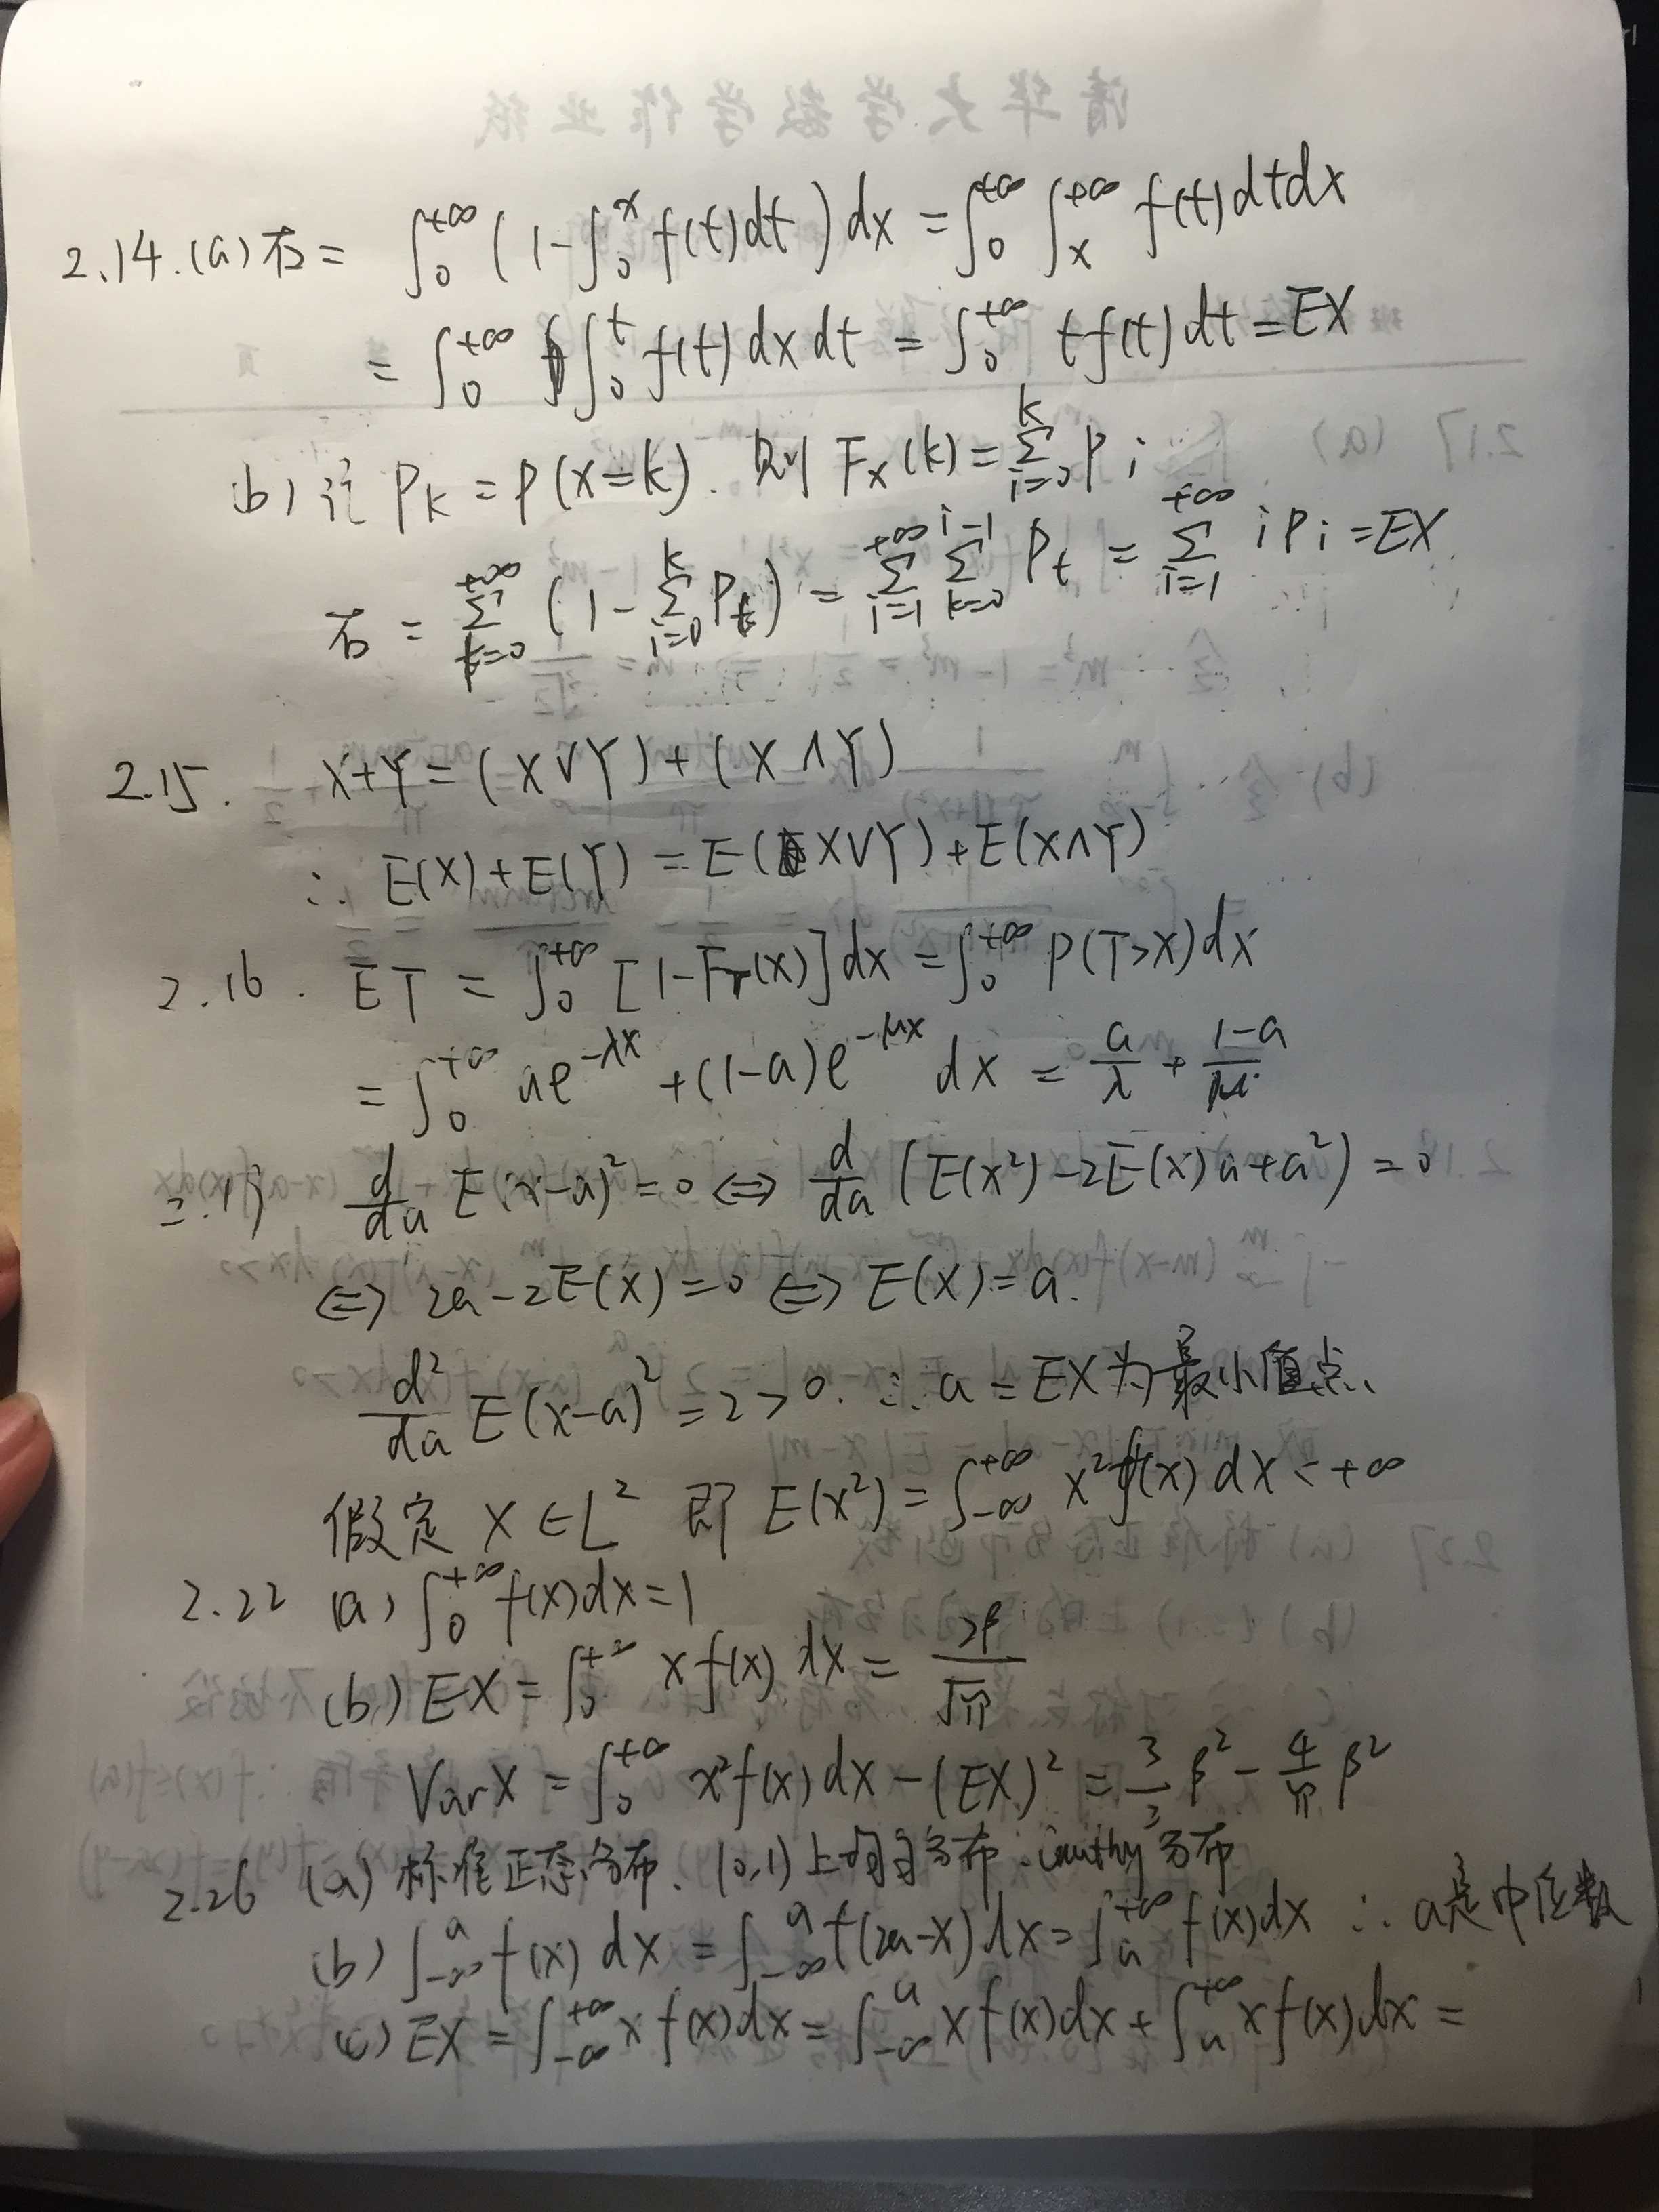 2.14.(a) 右 = ∫₀^{+∞} (1-∫₀^x f(t)dt) dx = ∫₀^{+∞} ∫_x^{+∞} f(t)dtdx
= ∫₀^{+∞} ∫₀^t f(t) dx dt = ∫₀^{+∞} t f(t) dt = EX
(b) 记 P_k = P(X=k). 则 F_X(k) = Σ_{i=0}^k P_i
右 = Σ_{k=0}^{+∞} (1 - Σ_{i=0}^k P_t) = Σ_{i=1}^{+∞} Σ_{k=0}^{i-1} P_t = Σ_{i=1}^{+∞} i P_i = EX.
2.15. X+Y = (X∨Y) + (X∧Y)
∴ E(X)+E(Y) = E(X∨Y)+E(X∧Y)
2.16. ET = ∫₀^{+∞} [1-F_T(x)]dx = ∫₀^{+∞} P(T>x)dx
= ∫₀^{+∞} ae^{-λx} + (1-a)e^{-μx} dx = a/λ + (1-a)/μ.
2.19 d/da E(x-a)² = 0 ⇔ d/da (E(x²)-2E(x)a+a²) = 0
⇔ 2a-2E(X)=0 ⇔ E(X)=a.
d²/da E(x-a)² = 2>0. ∴ a = EX为最小值点.
假定 X∈L² 即 E(x²) = ∫_{-∞}^{+∞} x²f(x) dx < +∞
2.22 (a) ∫₀^{+∞} f(x)dx=1
(b) EX = ∫₀^{+∞} x f(x) dx = 2β/√π
VarX = ∫₀^{+∞} x²f(x)dx-(EX)² = 3/3 β² - 4/π β²
2.26 (a) 标准正态分布、(0,1)上均匀分布、Cauthy分布
(b) ∫_{-∞}^a f(x) dx = ∫_{-∞}^a f(2a-x) dx = ∫_a^{+∞} f(x)dx ∴ a是中位数
(c) EX = ∫_{-∞}^{+∞} x f(x)dx = ∫_{-∞}^a x f(x)dx + ∫_a^{+∞} x f(x)dx =